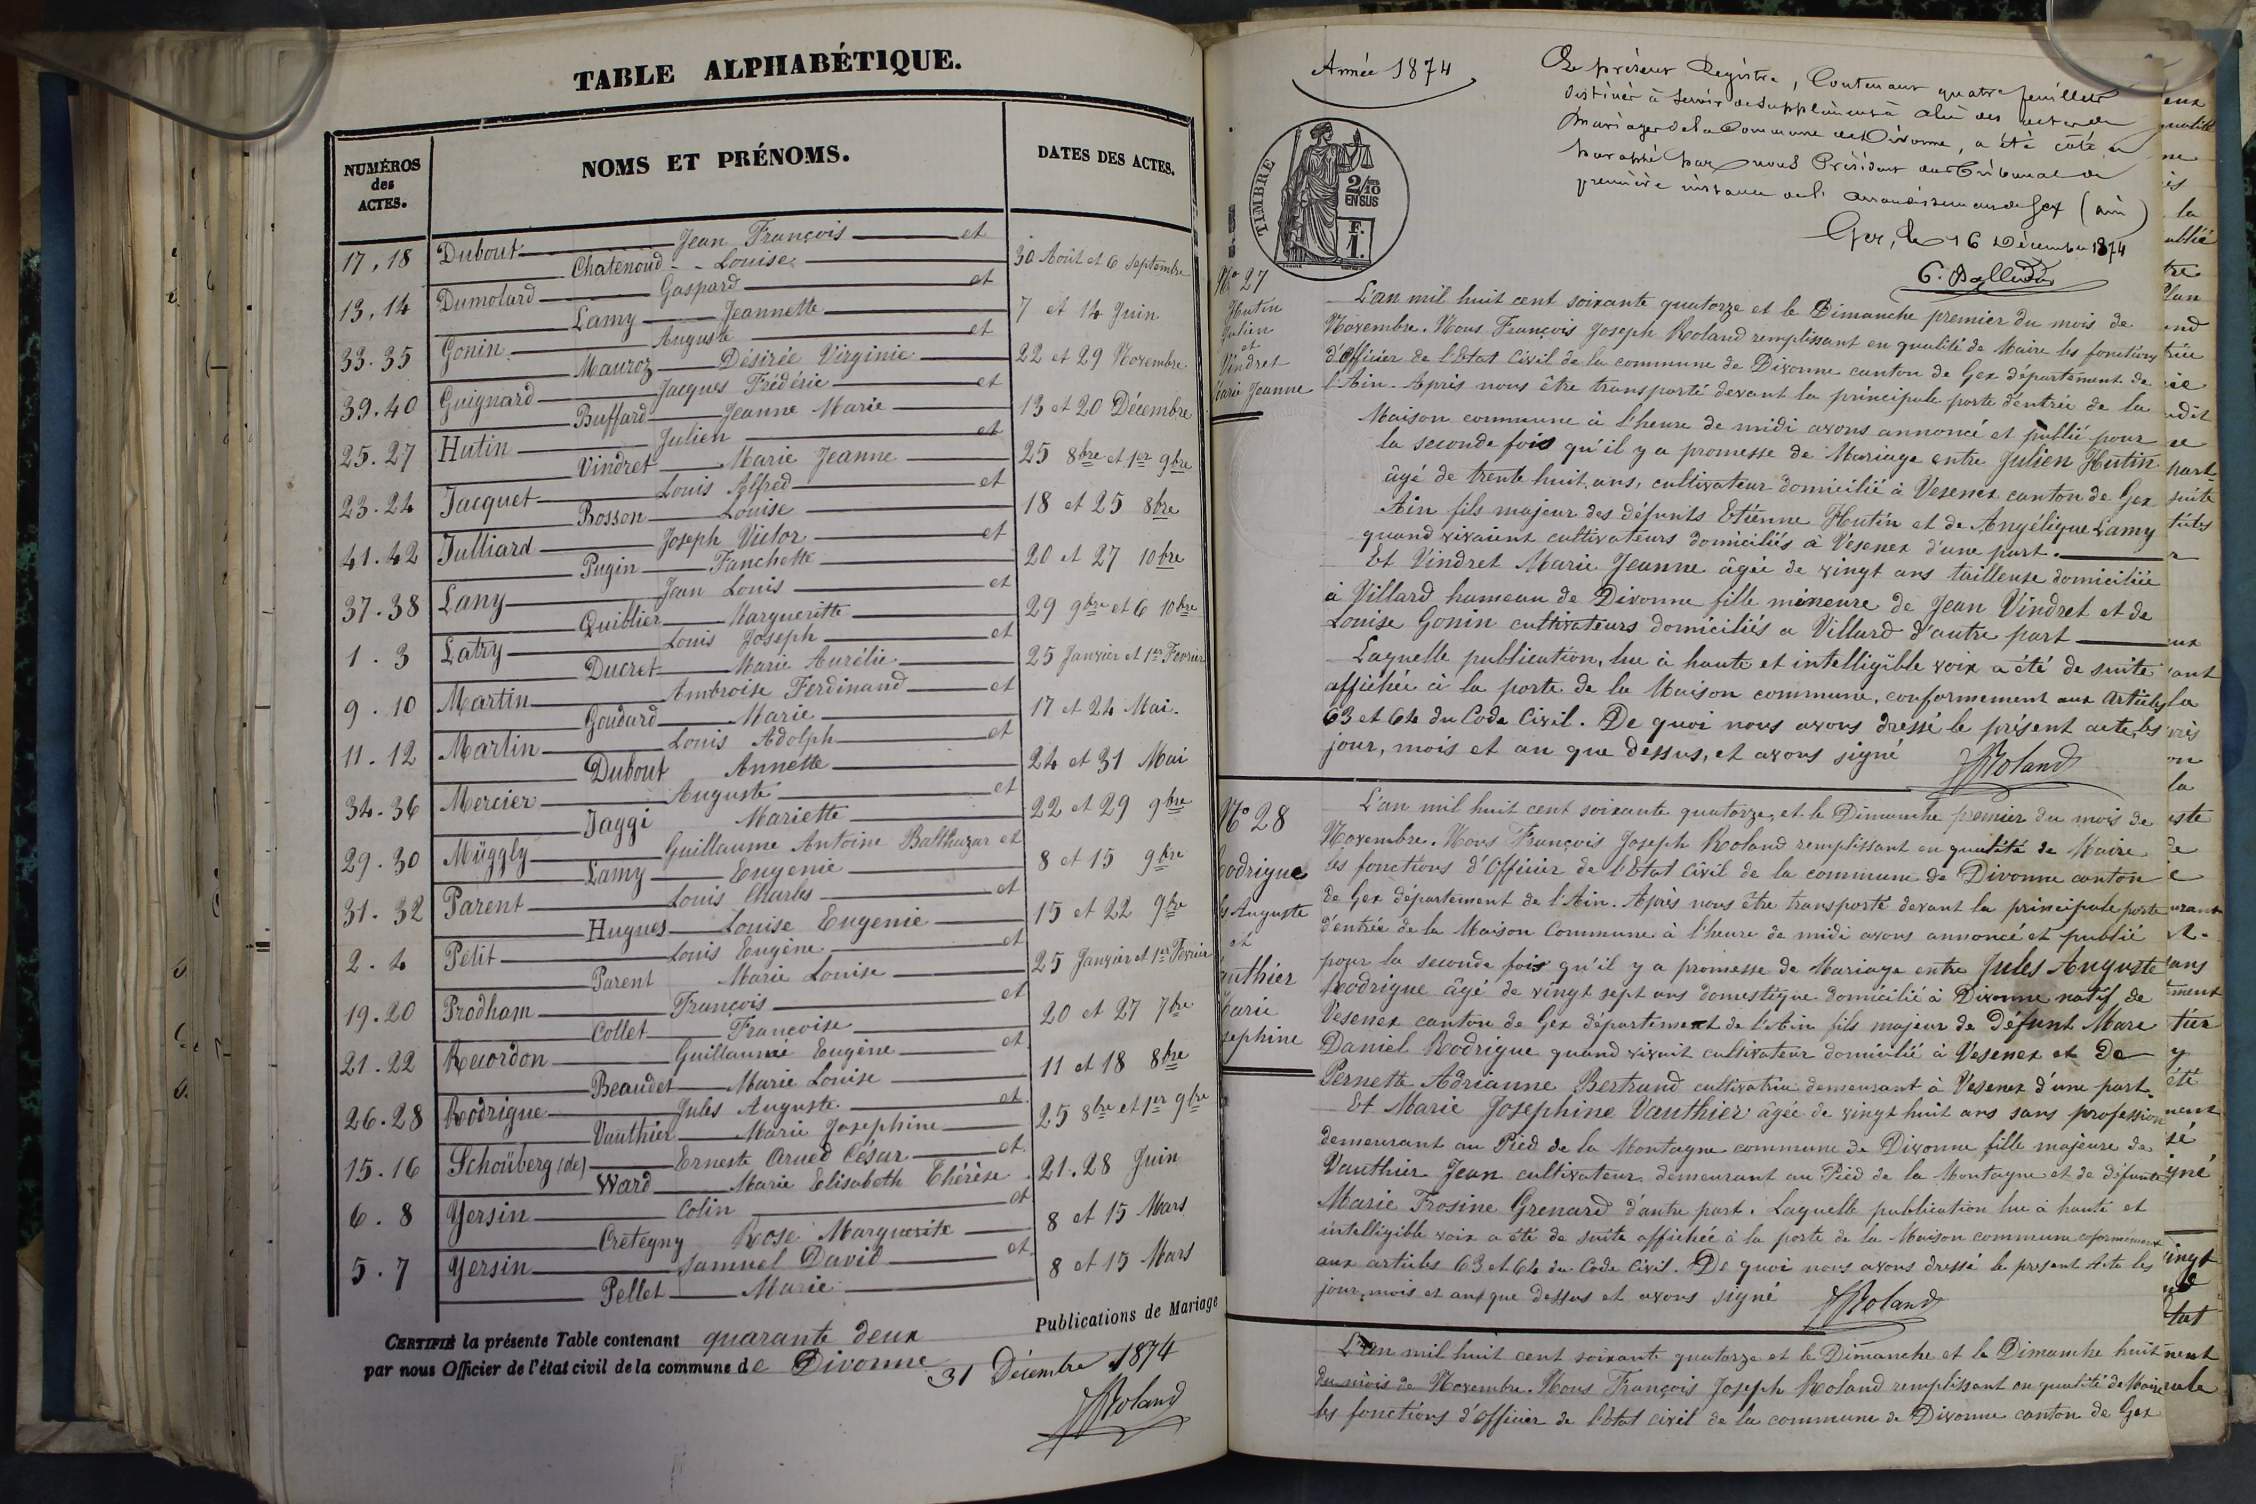 TABLE ALPHABÉTIQUE.
NUMÉROS des ACTES. NOMS ET PRÉNOMS. DATES DES ACTES.
17.18 Dubout Jean François et 30 Août et 6 Septembre
Chatenoud Louise
13.14 Dumolard Gaspard et 7 et 14 Juin
Lamy Jeannette
33.35 Gonin Auguste et 22 et 29 Novembre
Mauroz Désirée Virginie
39.40 Guignard Jacques Frédéric et 13 et 20 Décembre
Buffard Jeanne Marie
25.27 Hutin Julien et 25 8bre et 1er 9bre
Vindret Marie Jeanne
23.24 Jacquet Louis Alfred et 18 et 25 8bre
Rosson Louise
41.42 Julliard Joseph Victor et 20 et 27 10bre
Pugin Fanchette
37.38 Lany Jean Louis et 29 9bre et 6 10bre
Quiblier Margueritte
1.3 Latry Louis Joseph et 25 Janvier et 1er Fevrier
Ducret Marie Aurélie
9.10 Martin Ambroise Ferdinand et 17 et 24 Mai.
Goudard Marie
11.12 Martin Louis Adolph et 24 et 31 Mai
Dubout Annette
34.36 Mercier Auguste et 22 et 29 9bre
Jaggi Mariette
29.30 Müggly Guillaume Antoine Balthazar et 8 et 15 9bre
Lamy Eugenie
31.32 Parent Louis Charles et 15 et 22 9bre
Hugues Louise Eugenie
2.4 Petit Louis Eugène et 25 Janvier et 1er Fevrier
Parent Marie Louise
19.20 Prodham François et 20 et 27 7bre
Collet Françoise
21.22 Recordon Guillaume Eugène et 11 et 18 8bre
Beaudet Marie Louise
26.28 Rodrigue Jules Auguste et 25 8bre et 1er 9bre
Vauthier Marie Josephine
15.16 Schoüberg (de) Erneste Arued César et 21.28 Juin
Ward Marie Elisabeth Thérèse
6.8 Yersin Colin et 8 et 15 Mars
Cretegny Rose Marguerite
5.7 Yersin Samuel David et 8 et 15 Mars
Pellet Marie
CERTIFIÉ la présente Table contenant quarante deux Publications de Mariage
par nous Officier de l'état civil de la commune de Divonne 31 Décembre 1874
JRoland
Année 1874
Le présent Registre, Contenant quatre feuillets
destinés à servir de supplément à celui des actes de
Mariages de la Commune de Divonne, a été coté et
paraphé par nous Président du Tribunal de
première instance de l'arrondissement de Gex (ain)
Gex, le 16 Décembre 1874
TIMBRE
2/10 EN SUS
F. 1.
No 27
Hutin
Julien
et
Vindret
Marie Jeanne
L'an mil huit cent soixante quatorze et le Dimanche premier du mois de
Novembre. Nous François Joseph Roland remplissant en qualité de Maire les fonctions
d'Officier de l'Etat Civil de la commune de Divonne canton de Gex département de
l'Ain. Après nous être transporté devant la principale porte d'entrée de la
Maison commune à l'heure de midi avons annoncé et publié pour
la seconde fois qu'il y a promesse de Mariage entre Julien Hutin
âgé de trente huit ans, cultivateur domicilié à Vesenex canton de Gex
Ain fils majeur des défunts Etienne Hutin et de Angélique Lamy
quand vivaient cultivateurs domiciliés à Vesenex d'une part.
Et Vindret Marie Jeanne âgée de vingt ans tailleuse domiciliée
à Villard hameau de Divonne fille mineure de Jean Vindret et de
Louise Gonin cultivateurs domiciliés a Villard d'autre part
Laquelle publication, lue à haute et intelligible voix a été de suite
affichée à la porte de la Maison commune, conformement aux articles
63 et 64 du Code Civil. De quoi nous avons dressé le présent acte, les
jour, mois et an que dessus, et avons signé
JRoland
No 28
Rodrigue
Jules Auguste
et
Vauthier
Marie
Josephine
L'an mil huit cent soixante quatorze, et le Dimanche premier du mois de
Novembre. Nous François Joseph Roland remplissant en qualité de Maire
les fonctions d'Officier de l'Etat Civil de la commune de Divonne canton
de Gex département de l'Ain. Après nous être transporté devant la principale porte
d'entrée de la Maison Commune à l'heure de midi avons annoncé et publié
pour la seconde fois qu'il y a promesse de Mariage entre Jules Auguste
Rodrigue âgé de vingt sept ans domestique domicilié à Divonne natif de
Vesenex canton de Gex département de l'Ain fils majeur de Défunt Marc
Daniel Rodrigue quand vivait cultivateur domicilié à Vesenex et de
Pernette Adrianne Bertrand cultivatrice demeurant à Vesenex d'une part.
Et Marie Josephine Vauthier âgée de vingt huit ans sans profession
demeurant au Pied de la Montagne commune de Divonne fille majeure de
Vauthier Jean cultivateur demeurant au Pied de la Montagne et de défunte
Marie Frosine Grenard d'autre part. Laquelle publication lue à haute et
intelligible voix a été de suite affichée à la porte de la Maison commune coformement
aux articles 63 et 64 du Code Civil. De quoi nous avons dressé le present Acte les
jour, mois et an que dessus et avons signé
JRoland
L'an mil huit cent soixante quatorze et le Dimanche et le Dimanche huit
du mois de Novembre. Nous François Joseph Roland remplissant en qualité de Maire
les fonctions d'officier de l'état civil de la commune de Divonne canton de Gex